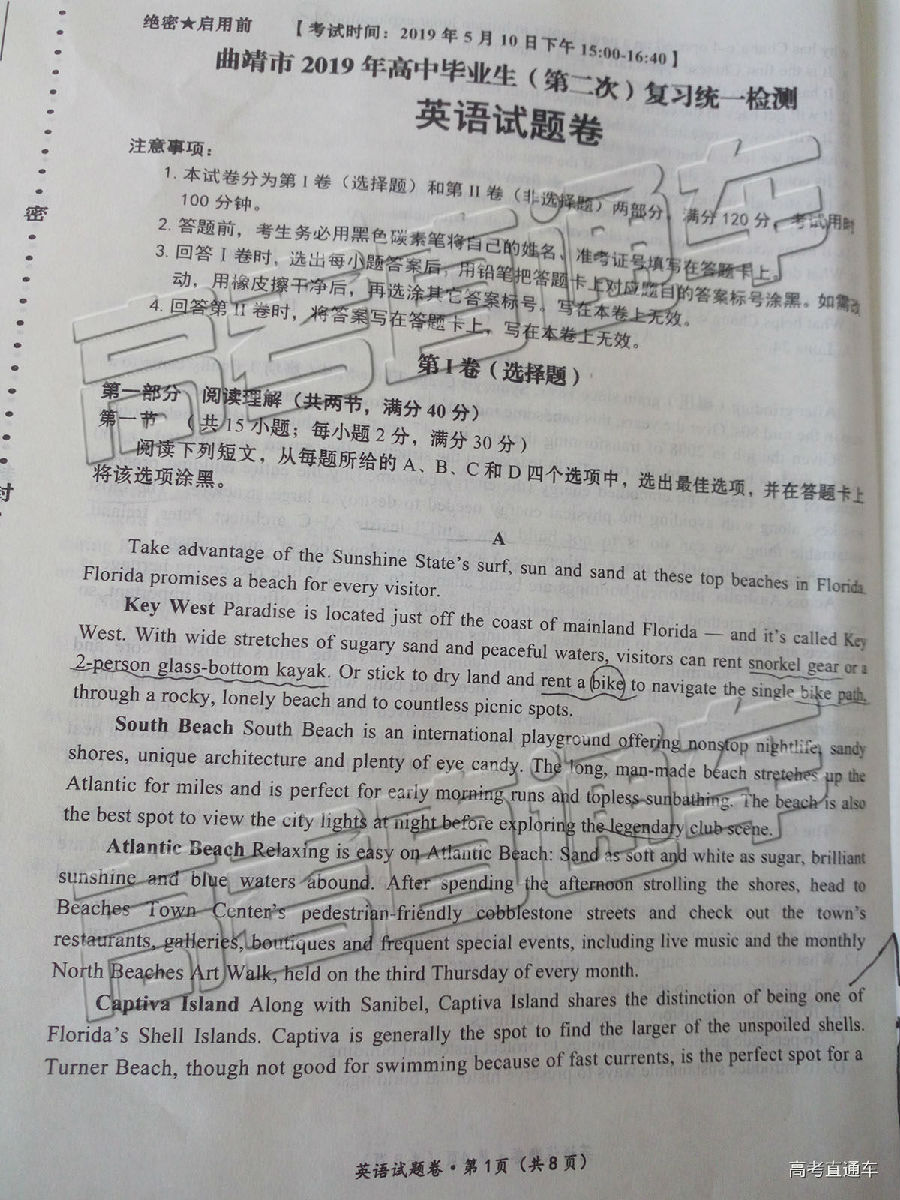 绝密★启用前 【考试时间：2019年5月10日下午15:00-16:40】
曲靖市2019年高中毕业生（第二次）复习统一检测
英语试题卷
注意事项：
1. 本试卷分为第Ⅰ卷（选择题）和第Ⅱ卷（非选择题）两部分，满分120分，考试用时
100分钟。
2. 答题前，考生务必用黑色碳素笔将自己的姓名、准考证号填写在答题卡上。
3. 回答Ⅰ卷时，选出每小题答案后，用铅笔把答题卡上对应题目的答案标号涂黑。如需改
动，用橡皮擦干净后，再选涂其它答案标号。写在本卷上无效。
4. 回答第Ⅱ卷时，将答案写在答题卡上，写在本卷上无效。
第Ⅰ卷（选择题）
第一部分 阅读理解（共两节，满分40分）
第一节 （共15小题；每小题2分，满分30分）
阅读下列短文，从每题所给的A、B、C和D四个选项中，选出最佳选项，并在答题卡上
将该选项涂黑。
A
Take advantage of the Sunshine State's surf, sun and sand at these top beaches in Florida.
Florida promises a beach for every visitor.
Key West Paradise is located just off the coast of mainland Florida — and it's called Key
West. With wide stretches of sugary sand and peaceful waters, visitors can rent snorkel gear or a
2-person glass-bottom kayak. Or stick to dry land and rent a bike to navigate the single bike path,
through a rocky, lonely beach and to countless picnic spots.
South Beach South Beach is an international playground offering nonstop nightlife, sandy
shores, unique architecture and plenty of eye candy. The long, man-made beach stretches up the
Atlantic for miles and is perfect for early morning runs and topless sunbathing. The beach is also
the best spot to view the city lights at night before exploring the legendary club scene.
Atlantic Beach Relaxing is easy on Atlantic Beach: Sand as soft and white as sugar, brilliant
sunshine and blue waters abound. After spending the afternoon strolling the shores, head to
Beaches Town Center's pedestrian-friendly cobblestone streets and check out the town's
restaurants, galleries, boutiques and frequent special events, including live music and the monthly
North Beaches Art Walk, held on the third Thursday of every month.
Captiva Island Along with Sanibel, Captiva Island shares the distinction of being one of
Florida's Shell Islands. Captiva is generally the spot to find the larger of the unspoiled shells.
Turner Beach, though not good for swimming because of fast currents, is the perfect spot for a
英语试题卷·第1页（共8页）
密
封
高考直通车
高考直通车
高考直通车